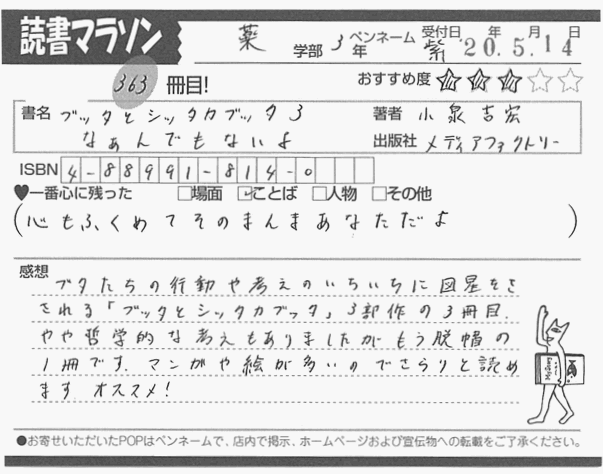 読書マラソン
薬 学部 3年 ペンネーム 紫 受付日 20年5.14日
363 冊目!
おすすめ度 ★★★☆☆
書名 ブッタとシッタカブッタ3
なぁんでもないよ
著者 小泉吉宏
出版社 メディアファクトリー
ISBN 4-88991-814-0
♥一番心に残った □場面 ☑ことば □人物 □その他
(心もふくめてそのまんまあなただよ)
感想
ブタたちの行動や考えのいちいちに図星をさ
される「ブッタとシッタカブッタ」3部作の3冊目.
やや哲学的な考えもありましたがもう脱帽の
1冊です.マンガや絵が多いのでさらりと読め
ます.オススメ!
●お寄せいただいたPOPはペンネームで、店内で掲示、ホームページおよび宣伝物への転載をご了承ください。